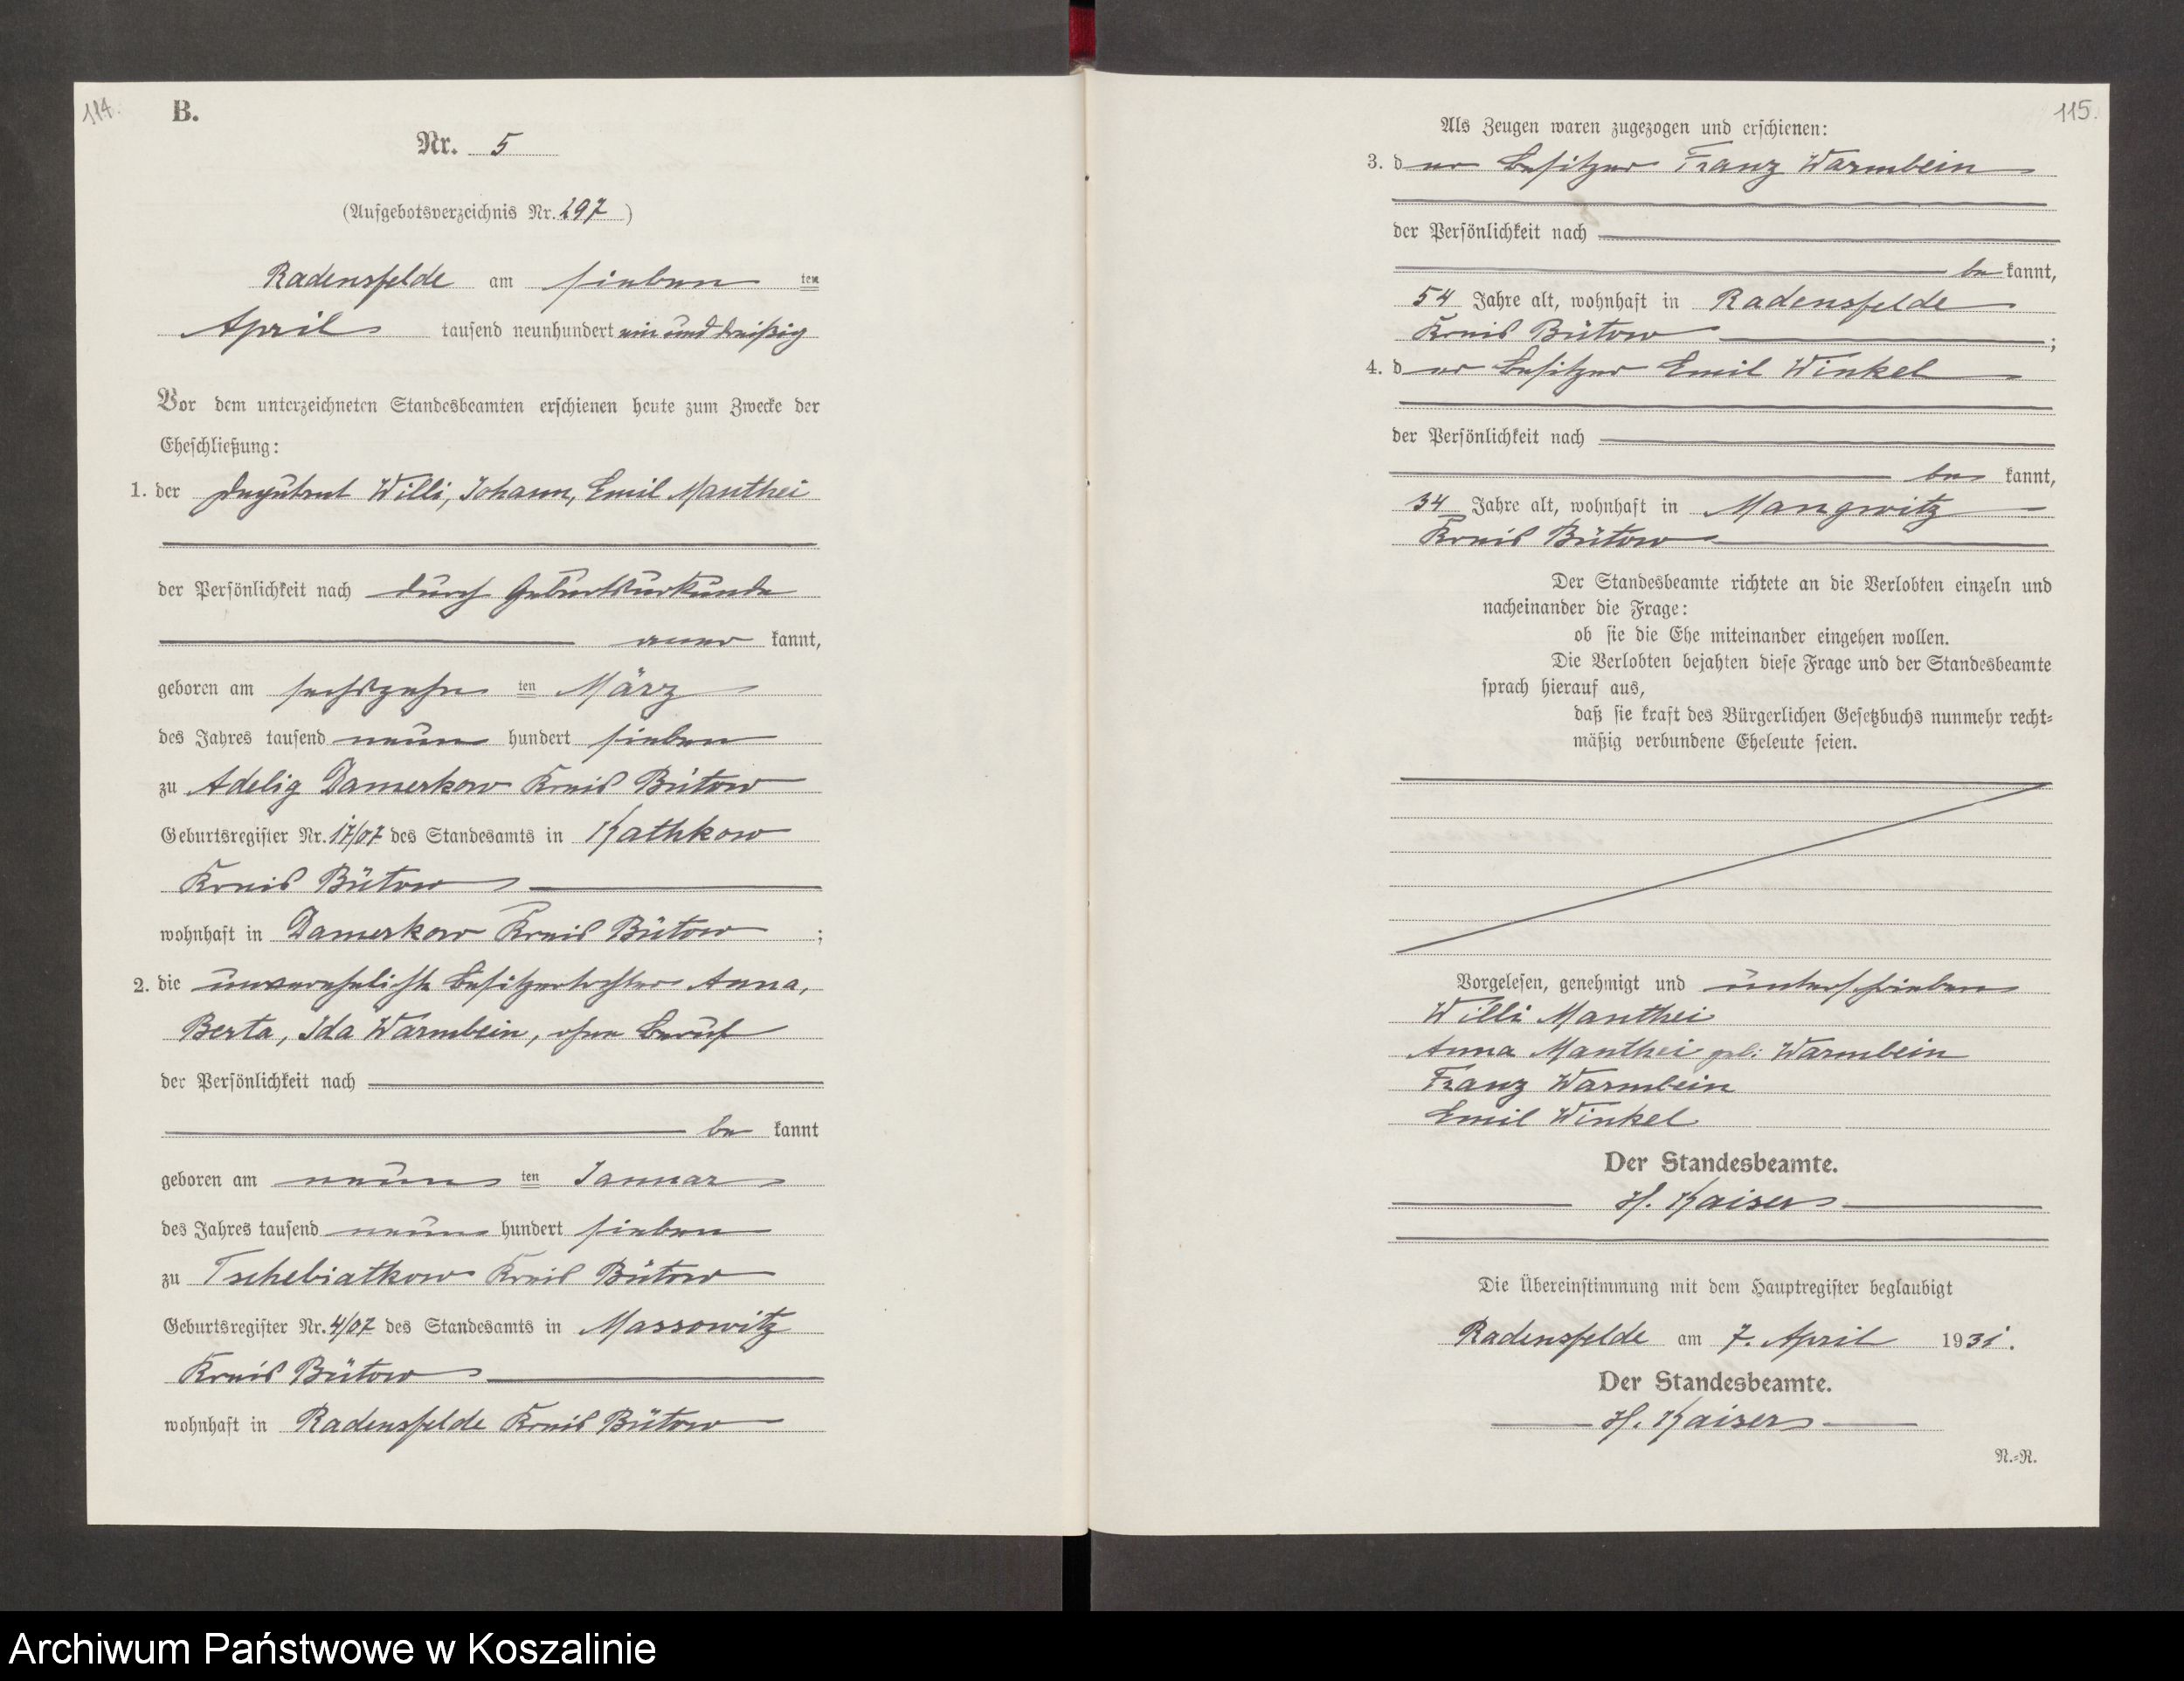 114.
B.
Nr. 5
(Aufgebotsverzeichnis Nr. 297)
Radensfelde am sieben ten
April tausend neunhundert ein und dreißig
Vor dem unterzeichneten Standesbeamten erschienen heute zum Zwecke der
Eheschließung:
1. der Deputant Willi, Johann, Emil Manthei
der Persönlichkeit nach durch Geburtsurkunde
aner kannt,
geboren am sechszehn ten März
des Jahres tausend neun hundert sieben
zu Adelig Damerkow Kreis Bütow
Geburtsregister Nr. 17/07 des Standesamts in Kathkow
Kreis Bütow
wohnhaft in Damerkow Kreis Bütow ;
2. die unverehelichte Besitzertochter Anna,
Berta, Ida Warmbein, ohne Beruf
der Persönlichkeit nach
be kannt
geboren am neun ten Januar
des Jahres tausend neun hundert sieben
zu Tschebiatkow Kreis Bütow
Geburtsregister Nr. 4/07 des Standesamts in Massowitz
Kreis Bütow
wohnhaft in Radensfelde Kreis Bütow
115.
Als Zeugen waren zugezogen und erschienen:
3. d er Besitzer Franz Warmbein
der Persönlichkeit nach
be kannt,
54 Jahre alt, wohnhaft in Radensfelde
Kreis Bütow ;
4. d er Besitzer Emil Winkel
der Persönlichkeit nach
be kannt,
34 Jahre alt, wohnhaft in Mangwitz
Kreis Bütow
Der Standesbeamte richtete an die Verlobten einzeln und
nacheinander die Frage:
ob sie die Ehe miteinander eingehen wollen.
Die Verlobten bejahten diese Frage und der Standesbeamte
sprach hierauf aus,
daß sie kraft des Bürgerlichen Gesetzbuchs nunmehr recht-
mäßig verbundene Eheleute seien.
Vorgelesen, genehmigt und unterschrieben
Willi Manthei
Anna Manthei geb: Warmbein
Franz Warmbein
Emil Winkel
Der Standesbeamte.
H. Kaiser
Die Übereinstimmung mit dem Hauptregister beglaubigt
Radensfelde am 7. April 1931.
Der Standesbeamte.
H. Kaiser
N.-R.
Archiwum Państwowe w Koszalinie